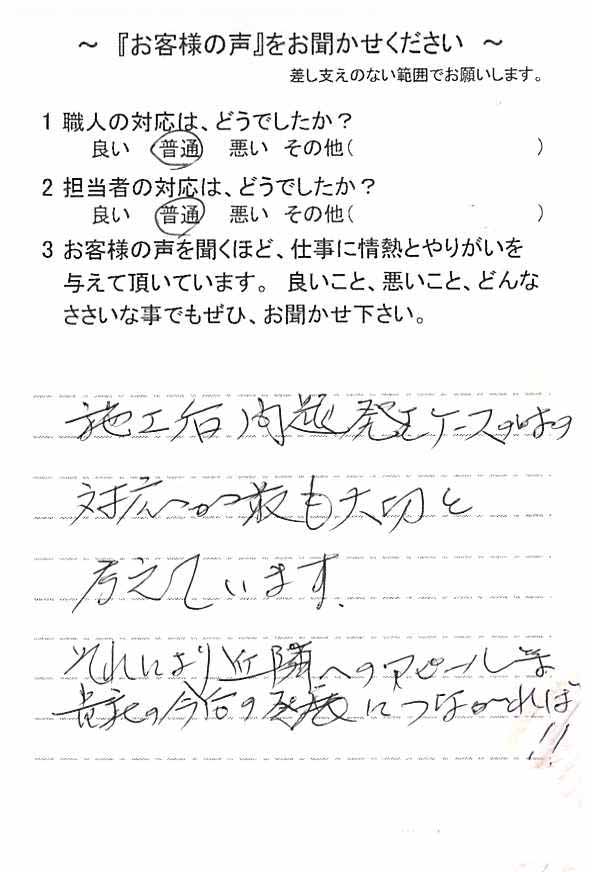 ～ 『お客様の声』をお聞かせください ～
差し支えのない範囲でお願いします。
1 職人の対応は、どうでしたか？
良い 普通 悪い その他( )
2 担当者の対応は、どうでしたか？
良い 普通 悪い その他( )
3 お客様の声を聞くほど、仕事に情熱とやりがいを
与えて頂いています。 良いこと、悪いこと、どんな
ささいな事でもぜひ、お聞かせ下さい。
施工后問題発生ケースの時の
対応が最も大切と
考えています.
それにより近隣へのアピール
貴社の今后の発展につながれば
!!